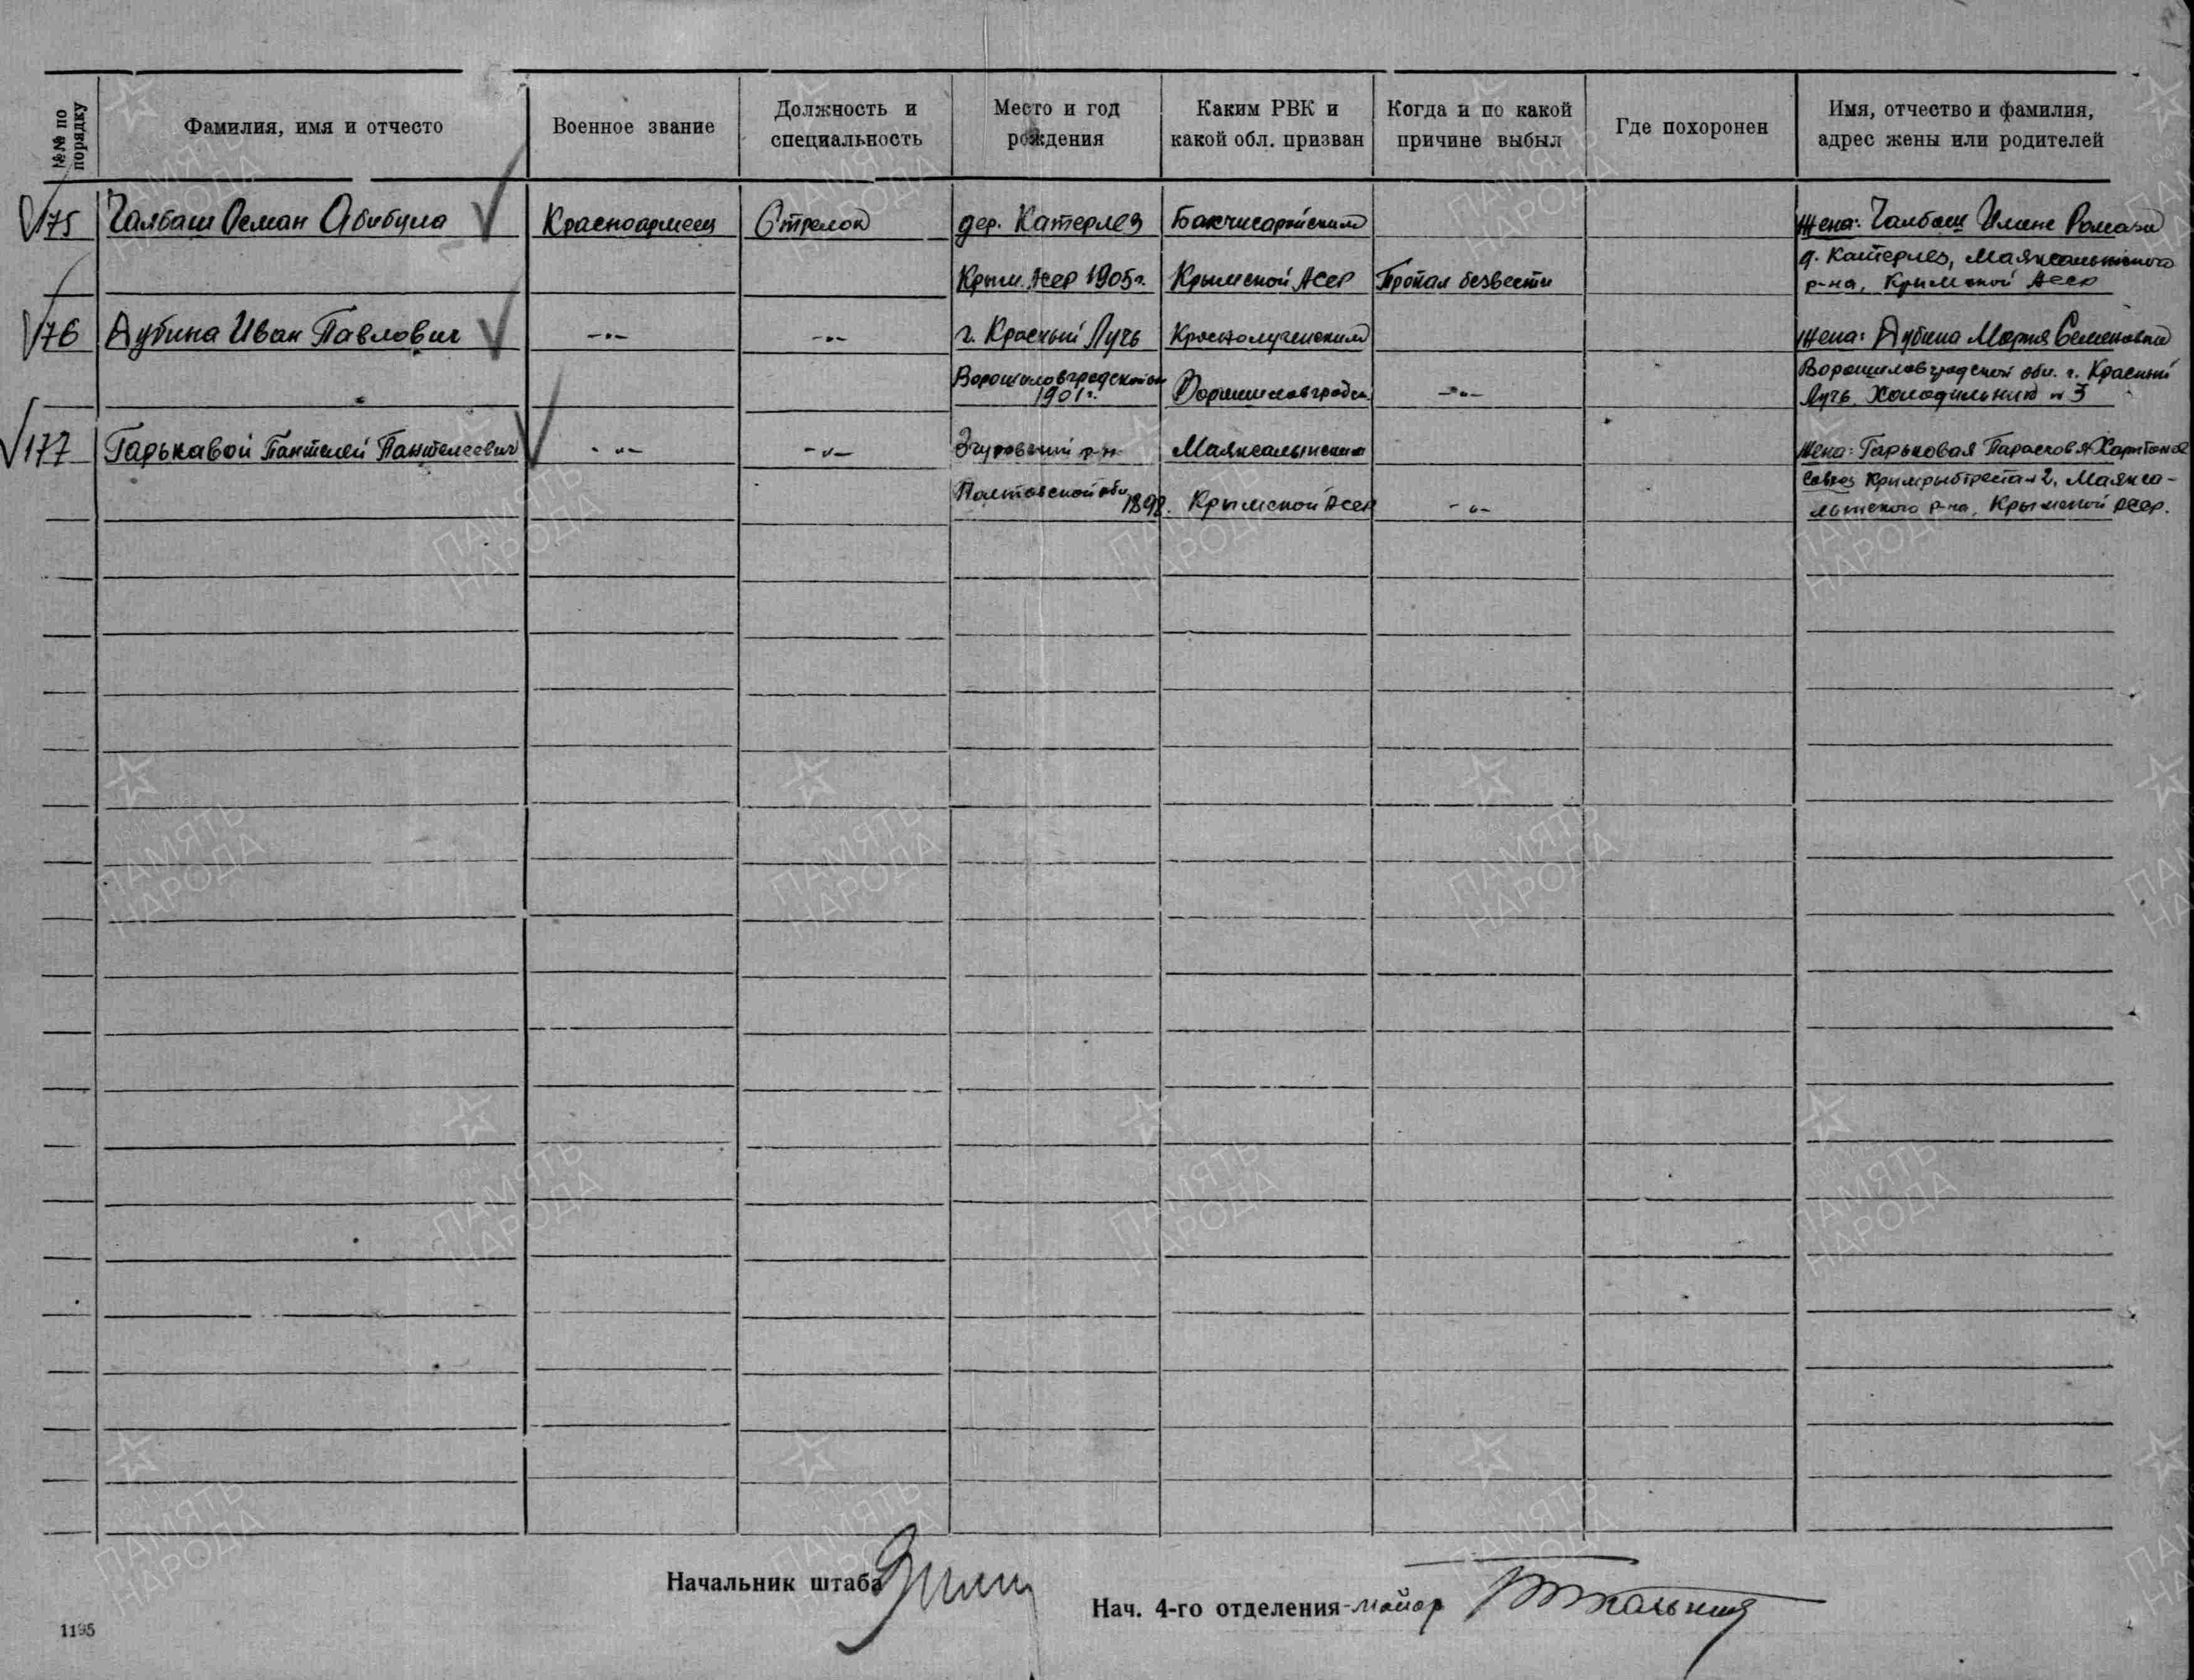 №№ по порядку
Фамилия, имя и отчесто
Военное звание
Должность и специальность
Место и год рождения
Каким РВК и какой обл. призван
Когда и по какой причине выбыл
Где похоронен
Имя, отчество и фамилия, адрес жены или родителей
175 Чалбаш Осман Абибула Красноармеец Стрелок дер. Катерлез Бакчисарайским жена: Чалбаш
Крым. Асср 1905 г. Крымской Асср Пропал безвести д. Катерлез, Маяксалынского
р-на, Крымской Асср
176 Дубина Иван Павлович -"- -"- г. Красный Лучь Краснолученским жена: Дубина Мария Семеновна
Ворошиловградской обл. 1901 г. Ворошиловградск. -"- Ворошиловградской обл. г. Красный
Лучь Холодильник № 3
177 Гарькавой Пантелей Пантелеевич -"- -"- Згуровский р-н Маяксалынским жена: Гарьковая Парасковя Харитонов
Полтавской обл. 1898. Крымской Асср -"- Совхоз Крымрыбтреста № 2, Маякса-
лынского р-на, Крымской Асср.
Начальник штаба
Нач. 4-го отделения-майор
1195
ПАМЯТЬ НАРОДА